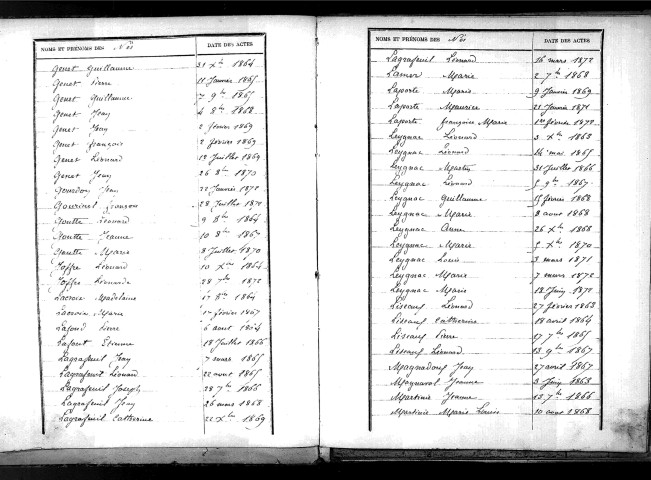 NOMS ET PRÉNOMS DES Nés DATE DES ACTES
Genet Guillaume 31 Xbre 1864
Genet Pierre 11 Janvier 1865
Genet Guillaume 7 9bre 1865
Genet Jean 4 8bre 1868
Genet Jean 2 février 1869
Genet François 2 février 1869
Genet Léonard 12 Juillet 1869
Genet Jean 26 8bre 1870
Gourdon Jean 22 Janvier 1872
François 28 Juillet 1870
Goutte Léonard 9 8bre 1864
Goutte Jeanne 10 8bre
Goutte Marie 8 Juillet 1870
Joffre Léonard 10 Xbre 1864
Joffre Léonarde 28 7bre 1872
Lacroix Madeleine 17 8bre 1864
Lacroix Marie 17 février 1867
Lafond Pierre 6 aout 1864
Lafont Etienne 18 Juillet 1866
Lagrafeuil Jean 7 mars 1865
Lagrafeuil Léonard 22 aout 1865
Lagrafeuil Joseph 28 7bre 1866
Lagrafeuil Jean 26 mars 1868
Lagrafeuil Catherine 22 Xbre 1869
NOMS ET PRÉNOMS DES Nés DATE DES ACTES
Lagrafeuil Léonard 16 mars 1872
Marie 2 7bre 1868
Laporte Marie 9 Janvier 1869
Laporte Maurice 21 Janvier 1871
Laporte françoise Marie 1er février 1872
Leygnac Léonard 3 Xbre 1863
Leygnac Léonard 14 mai 1865
Leygnac Martin 31 Juillet 1866
Leygnac Léonard 5 9bre 1867
Leygnac Guillaume 15 février 1868
Leygnac Marie 8 aout 1868
Leygnac Anne 26 Xbre 1868
Leygnac Marie 5 Xbre 1870
Leygnac Louis 3 mars 1871
Leygnac Marie 7 mars 1872
Leygnac Marie 18 Juin 1872
Lissauf Léonard 27 février 1863
Lissauf Catherine 18 avril 1864
Lissauf Pierre 17 7bre 1865
Lissauf Léonard 13 9bre 1867
Magnadoux Jean 27 avril 1867
Magnaval Jeanne 3 Juin 1863
Martinie Jeanne 13 7bre 1866
Martinie Marie Louise 10 aout 1868